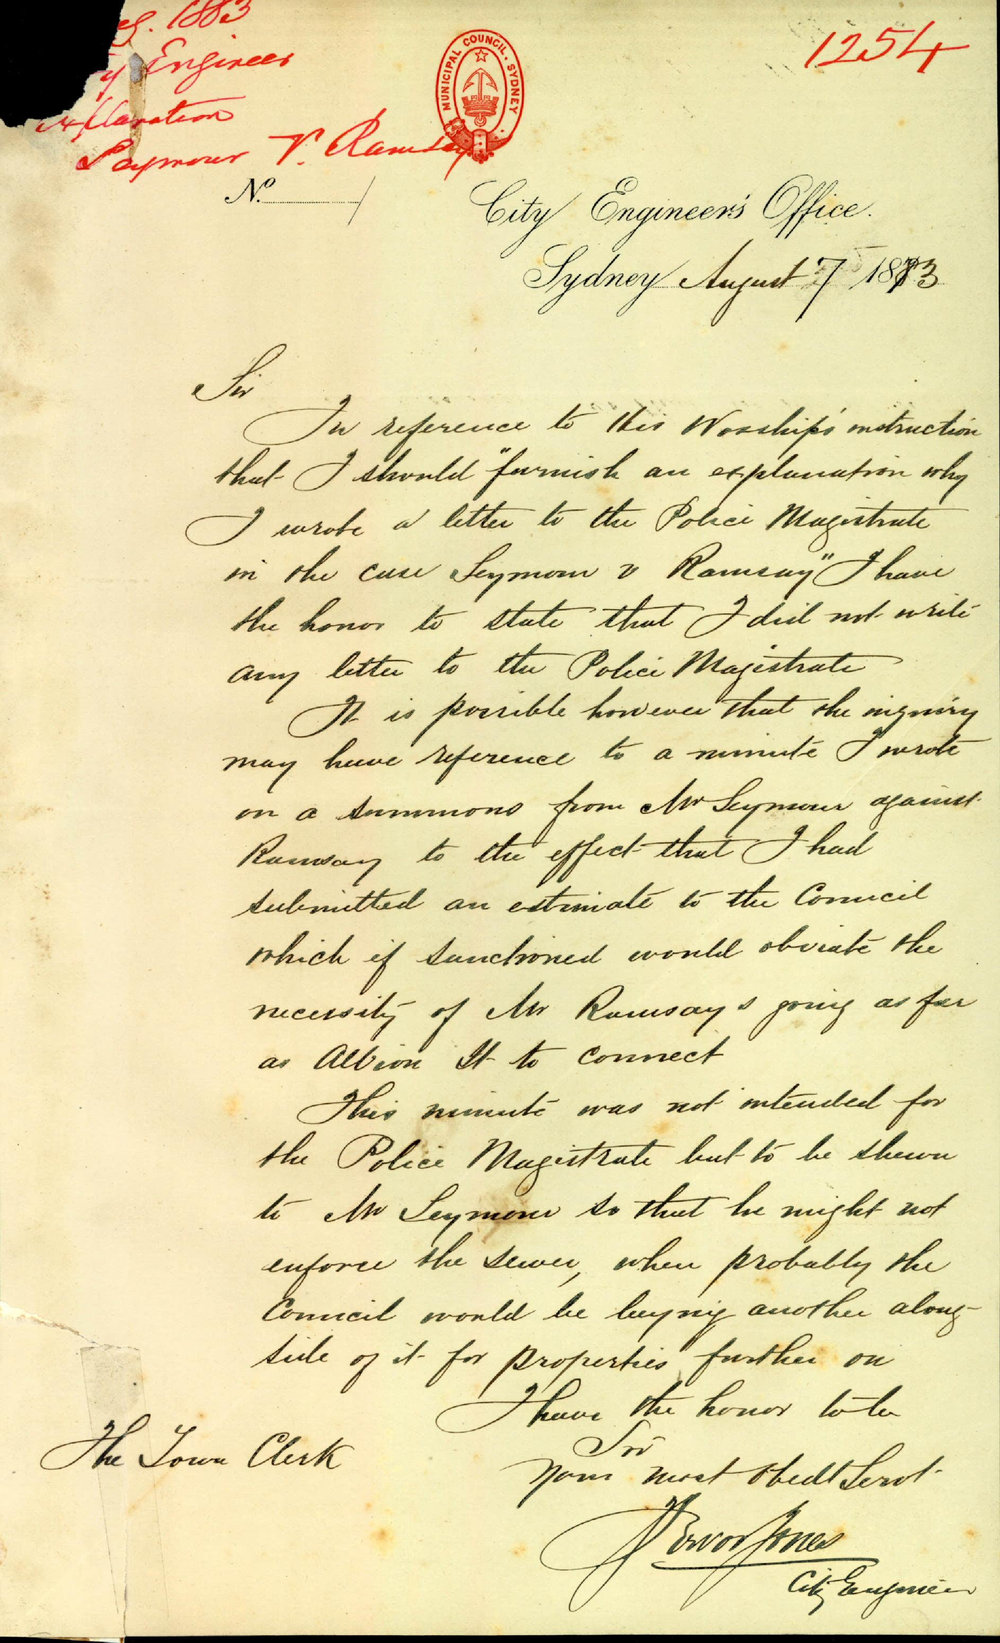 1883
Engineer
1254
MUNICIPAL COUNCIL. SYDNEY.
Seymour V. Ramsay
No.
City Engineer's Office.
Sydney August 7 1883
Sir
In reference to His Worship's instruction
that I should "furnish an explanation why
I wrote a letter to the Police Magistrate
in the case Seymour v Ramsay" I have
the honor to state that I did not write
any letter to the Police Magistrate
It is possible however that the inquiry
may have reference to a minute I wrote
on a summons from Mr Seymour against
Ramsay to the effect that I had
submitted an estimate to the Council
which if sanctioned would obviate the
necessity of Mr Ramsay's going as far
as Albion St to connect
This minute was not intended for
the Police Magistrate but to be shewn
to Mr Seymour so that he might not
enforce the sewer, when probably the
Council would be laying another along-
side of it for properties further on
I have the honor to be
Sir
Your most obedt Servt
The Town Clerk
Trevor Jones
City Engineer